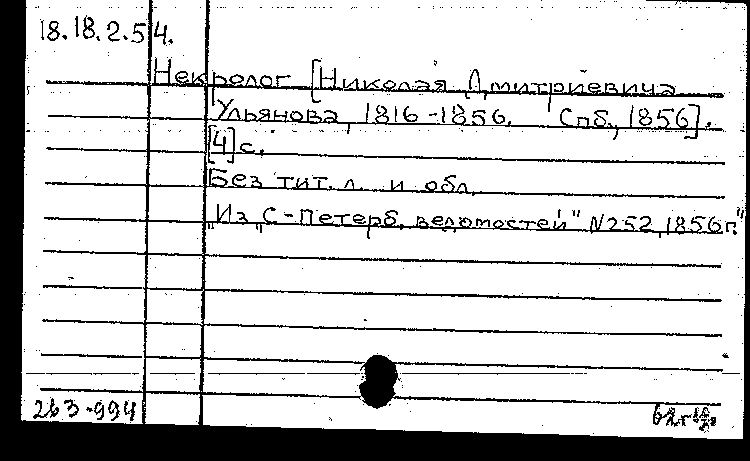 18.18.2.54.
Некролог [Николая Дмитриевича
Ульянова, 1816-1856. Спб., 1856].
[4] с.
Без тит. л. и обл.
"Из "С-Петерб. ведомостей" N252, 1856 г."
263-994